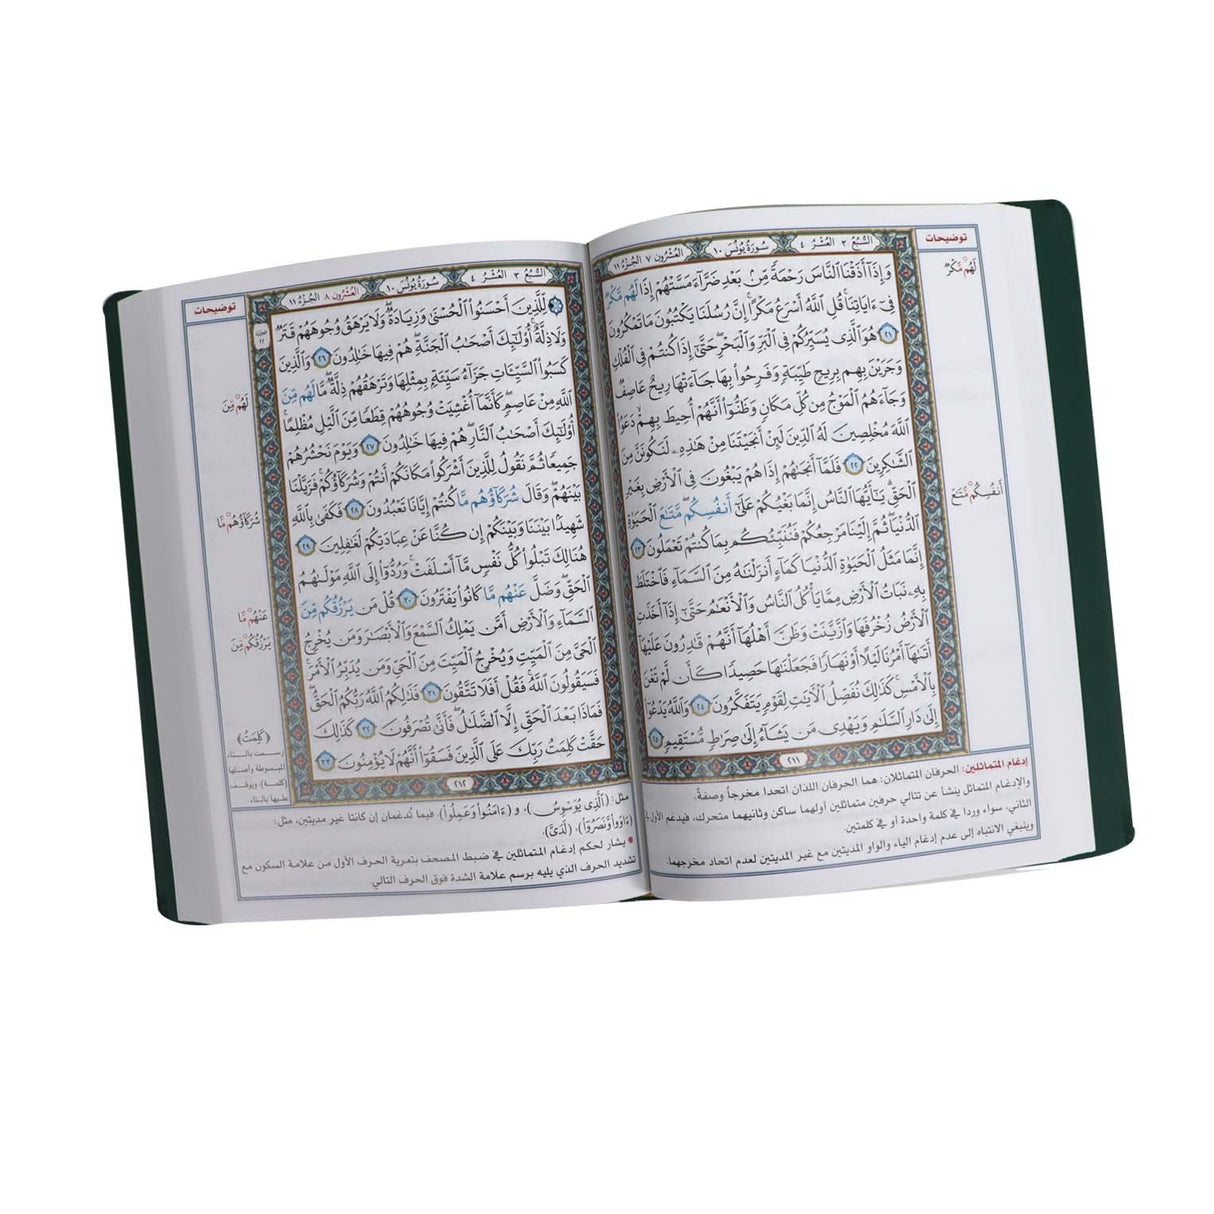 السُّبُع ٣ العُشُر ٤ سُورَةُ يُونُس ١٠ العُشْرُون ٧ الجُزْءُ ١١
توضيحات
لَهُم مَّكْرٌ
أَنفُسِكُم مَّتَٰعَ
وَإِذَآ أَذَقْنَا ٱلنَّاسَ رَحْمَةً مِّنۢ بَعْدِ ضَرَّآءَ مَسَّتْهُمْ إِذَا لَهُم مَّكْرٌ
فِىٓ ءَايَاتِنَا ۚ قُلِ ٱللَّهُ أَسْرَعُ مَكْرًا ۚ إِنَّ رُسُلَنَا يَكْتُبُونَ مَا تَمْكُرُونَ
٢١ هُوَ ٱلَّذِى يُسَيِّرُكُمْ فِى ٱلْبَرِّ وَٱلْبَحْرِ ۖ حَتَّىٰٓ إِذَا كُنتُمْ فِى ٱلْفُلْكِ
وَجَرَيْنَ بِهِم بِرِيحٍ طَيِّبَةٍ وَفَرِحُوا۟ بِهَا جَآءَتْهَا رِيحٌ عَاصِفٌ
وَجَآءَهُمُ ٱلْمَوْجُ مِن كُلِّ مَكَانٍ وَظَنُّوٓا۟ أَنَّهُمْ أُحِيطَ بِهِمْ ۙ دَعَوُا۟
ٱللَّهَ مُخْلِصِينَ لَهُ ٱلدِّينَ لَئِنْ أَنجَيْتَنَا مِنْ هَٰذِهِۦ لَنَكُونَنَّ مِنَ
ٱلشَّٰكِرِينَ ٢٢ فَلَمَّآ أَنجَىٰهُمْ إِذَا هُمْ يَبْغُونَ فِى ٱلْأَرْضِ بِغَيْرِ
ٱلْحَقِّ ۗ يَٰٓأَيُّهَا ٱلنَّاسُ إِنَّمَا بَغْيُكُمْ عَلَىٰٓ أَنفُسِكُم ۖ مَّتَٰعَ ٱلْحَيَوٰةِ
ٱلدُّنْيَا ۖ ثُمَّ إِلَيْنَا مَرْجِعُكُمْ فَنُنَبِّئُكُم بِمَا كُنتُمْ تَعْمَلُونَ ٢٣
إِنَّمَا مَثَلُ ٱلْحَيَوٰةِ ٱلدُّنْيَا كَمَآءٍ أَنزَلْنَٰهُ مِنَ ٱلسَّمَآءِ فَٱخْتَلَطَ
بِهِۦ نَبَاتُ ٱلْأَرْضِ مِمَّا يَأْكُلُ ٱلنَّاسُ وَٱلْأَنْعَٰمُ حَتَّىٰٓ إِذَآ أَخَذَتِ
ٱلْأَرْضُ زُخْرُفَهَا وَٱزَّيَّنَتْ وَظَنَّ أَهْلُهَآ أَنَّهُمْ قَٰدِرُونَ عَلَيْهَآ
أَتَىٰهَآ أَمْرُنَا لَيْلًا أَوْ نَهَارًا فَجَعَلْنَٰهَا حَصِيدًا كَأَن لَّمْ تَغْنَ
بِٱلْأَمْسِ ۚ كَذَٰلِكَ نُفَصِّلُ ٱلْءَايَٰتِ لِقَوْمٍ يَتَفَكَّرُونَ ٢٤ وَٱللَّهُ يَدْعُوٓا۟
إِلَىٰ دَارِ ٱلسَّلَٰمِ وَيَهْدِى مَن يَشَآءُ إِلَىٰ صِرَٰطٍ مُّسْتَقِيمٍ ٢٥
٢١١
إدغام المتماثلين: الحرفان المتماثلان: هما الحرفان اللذان اتحدا مخرجاً وصفةً.
والإدغام المتماثل ينشأ عن تتالي حرفين متماثلين أولهما ساكن وثانيهما متحرك، فيدغم الأول
الثاني، سواء وردا في كلمة واحدة أو في كلمتين.
وينبغي الانتباه إلى عدم إدغام الياء والواو المديتين مع غير المديتين لعدم اتحاد مخرجهما.
السُّبُع ٣ العُشُر ٤ سُورَةُ يُونُس ١٠ العُشْرُون ٨ الجُزْءُ ١١
توضيحات
لَهُم مِّنَ
شُرَكَآؤُهُم مَّا
عَنْهُم مَّا
يَرْزُقُكُم مِّنَ
﴿كَلِمَتُ﴾
رسمت بالتاء
المبسوطة وأصلها
(كلمة)، ويوقف
عليها بالتاء
لِّلَّذِينَ أَحْسَنُوا۟ ٱلْحُسْنَىٰ وَزِيَادَةٌ ۖ وَلَا يَرْهَقُ وُجُوهَهُمْ قَتَرٌ
وَلَا ذِلَّةٌ ۚ أُو۟لَٰٓئِكَ أَصْحَٰبُ ٱلْجَنَّةِ ۖ هُمْ فِيهَا خَٰلِدُونَ ٢٦ وَٱلَّذِينَ
كَسَبُوا۟ ٱلسَّيِّـَٔاتِ جَزَآءُ سَيِّئَةٍۭ بِمِثْلِهَا وَتَرْهَقُهُمْ ذِلَّةٌ ۖ مَّا لَهُم مِّنَ
ٱللَّهِ مِنْ عَاصِمٍ ۖ كَأَنَّمَآ أُغْشِيَتْ وُجُوهُهُمْ قِطَعًا مِّنَ ٱلَّيْلِ مُظْلِمًا ۚ
أُو۟لَٰٓئِكَ أَصْحَٰبُ ٱلنَّارِ ۖ هُمْ فِيهَا خَٰلِدُونَ ٢٧ وَيَوْمَ نَحْشُرُهُمْ
جَمِيعًا ثُمَّ نَقُولُ لِلَّذِينَ أَشْرَكُوا۟ مَكَانَكُمْ أَنتُمْ وَشُرَكَآؤُكُمْ ۚ فَزَيَّلْنَا
بَيْنَهُمْ ۖ وَقَالَ شُرَكَآؤُهُم مَّا كُنتُمْ إِيَّانَا تَعْبُدُونَ ٢٨ فَكَفَىٰ بِٱللَّهِ
شَهِيدًۢا بَيْنَنَا وَبَيْنَكُمْ إِن كُنَّا عَنْ عِبَادَتِكُمْ لَغَٰفِلِينَ ٢٩
هُنَالِكَ تَبْلُوا۟ كُلُّ نَفْسٍ مَّآ أَسْلَفَتْ ۚ وَرُدُّوٓا۟ إِلَى ٱللَّهِ مَوْلَىٰهُمُ
ٱلْحَقِّ ۖ وَضَلَّ عَنْهُم مَّا كَانُوا۟ يَفْتَرُونَ ٣٠ قُلْ مَن يَرْزُقُكُم مِّنَ
ٱلسَّمَآءِ وَٱلْأَرْضِ أَمَّن يَمْلِكُ ٱلسَّمْعَ وَٱلْأَبْصَٰرَ وَمَن يُخْرِجُ
ٱلْحَىَّ مِنَ ٱلْمَيِّتِ وَيُخْرِجُ ٱلْمَيِّتَ مِنَ ٱلْحَىِّ وَمَن يُدَبِّرُ ٱلْأَمْرَ ۚ
فَسَيَقُولُونَ ٱللَّهُ ۚ فَقُلْ أَفَلَا تَتَّقُونَ ٣١ فَذَٰلِكُمُ ٱللَّهُ رَبُّكُمُ ٱلْحَقُّ ۖ
فَمَاذَا بَعْدَ ٱلْحَقِّ إِلَّا ٱلضَّلَٰلُ ۖ فَأَنَّىٰ تُصْرَفُونَ ٣٢ كَذَٰلِكَ
حَقَّتْ كَلِمَتُ رَبِّكَ عَلَى ٱلَّذِينَ فَسَقُوٓا۟ أَنَّهُمْ لَا يُؤْمِنُونَ ٣٣
٢١٢
مثل: ﴿ٱلَّذِى يُوَسْوِسُ﴾، و ﴿ءَامَنُوا۟ وَعَمِلُوا۟﴾. فيما تدغمان إن كانتا غير مديتين، مثل:
﴿ءَاوَوا۟ وَّنَصَرُوٓا۟﴾، ﴿لَدَىَّ﴾.
* يشار لحكم إدغام المتماثلين في ضبط المصحف بتعرية الحرف الأول من علامة السكون مع
تشديد الحرف الذي يليه برسم علامة الشدة فوق الحرف التالي.